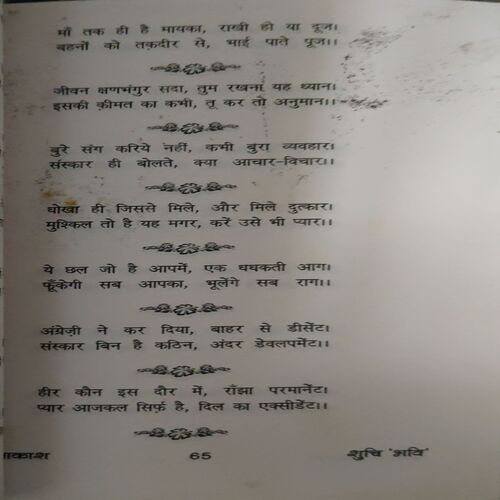 माँ तक ही है मायका, राखी हो या दूज।
बहनों को तक़दीर से, भाई पाते पूज।।
जीवन क्षणभंगुर सदा, तुम रखना यह ध्यान।
इसकी क़ीमत का कभी, तू कर तो अनुमान।।
बुरे संग करिये नहीं, कभी बुरा व्यवहार।
संस्कार ही बोलते, क्या आचार-विचार।।
धोखा ही जिससे मिले, और मिले दुत्कार।
मुश्किल तो है यह मगर, करें उसे भी प्यार।।
ये छल जो है आपमें, एक धधकती आग।
फूँकेगी सब आपका, भूलेंगे सब राग।।
अंग्रेज़ी ने कर दिया, बाहर से डीसेंट।
संस्कार बिन है कठिन, अंदर डेवलपमेंट।।
हीर कौन इस दौर में, राँझा परमानेंट।
प्यार आजकल सिर्फ़ है, दिल का एक्सीडेंट।।
65 शुचि 'भवि'